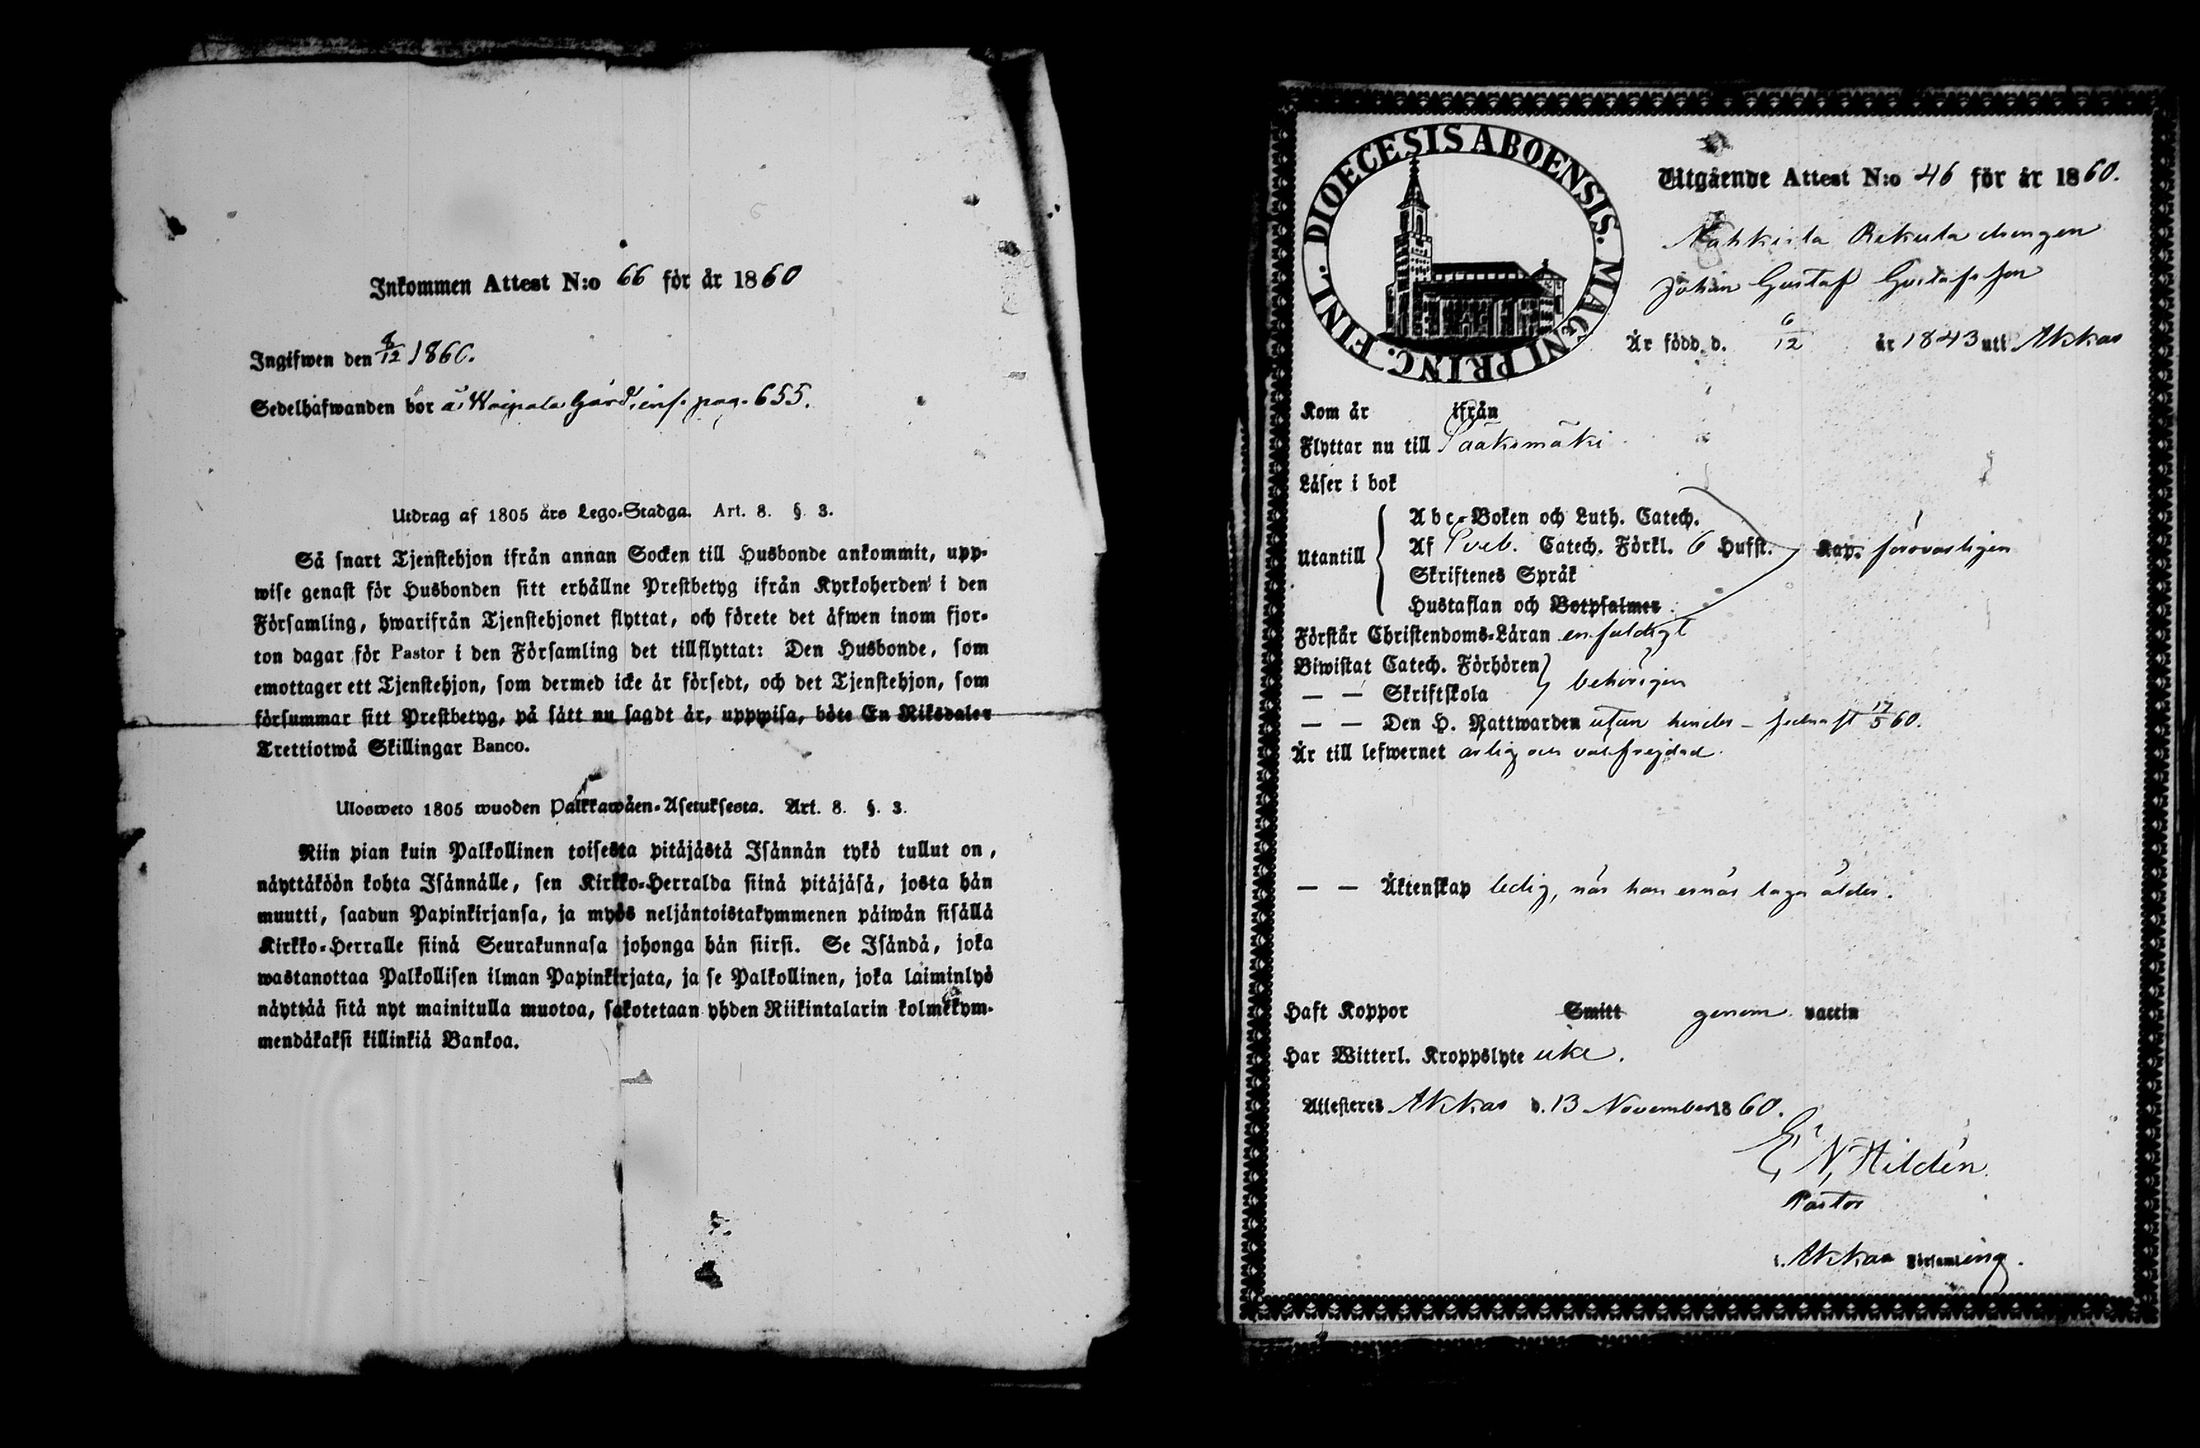 Inkommen Attest N:o 66 för år 1860
Ingifwen den 8/12 1860.
Sedelhafwanden bor å Woipala Gård, inf. pag. 655.
Utdrag af 1805 års Lego-Stadga. Art. 8. §. 3.
Så snart Tjenstehjon ifrån annan Socken till Husbonde ankommit, upp-
wise genast för Husbonden sitt erhållne Prestbetyg ifrån Kyrkoherden i den
Församling, hwarifrån Tjenstehjonet flyttat, och förete det äfwen inom fjor-
ton dagar för Pastor i den Församling det tillflyttat: Den Husbonde, som
emottager ett Tjenstehjon, som dermed icke är försedt, och det Tjenstehjon, som
försummar sitt Prestbetyg, på sätt nu sagdt är, uppwisa, böte En Riksdaler
Trettiotwå Skillingar Banco.
Ulosweto 1805 wuoden Palkkawäen-Asetuksesta. Art. 8. §. 3.
Niin pian kuin Palkollinen toisesta pitäjästä Isännän tykö tullut on,
näyttäköön kohta Isännälle, sen Kirkko-Herralda siinä pitäjäsä, josta hän
muutti, saadun Papinkirjansa, ja myös neljäntoistakymmenen päiwän sisällä
Kirkko-Herralle siinä Seurakunnasa johonga hän siirsi. Se Isändä, joka
wastanottaa Palkollisen ilman Papinkirjata, ja se Palkollinen, joka laiminlyö
näyttää sitä nyt mainitulla muotoa, sakotetaan yhden Riikintalarin kolmekym-
mendäkaksi killinkiä Bankoa.
DIOECESIS ABOENSIS. MAGNI PRINC. FINL.
Utgående Attest N:o 46 för år 1860.
Rekula drengen
Johan Gustaf Gustafsson
Är född d. 6/12 år 1843 uti Akkas
Kom år ifrån
Flyttar nu till Sääksmäki
Läser i bok
Utantill
Abc-Boken och Luth. Catech.
Af Sveb. Catech. Förkl. 6 Hufst. Kap. försvarligen
Skriftenes Språk
Hustaflan och Botpsalmer
Förstår Christendoms-Läran enfaldigt
Biwistat Catech. Förhören
— — Skriftskola behörigen
— — Den H. Nattwarden utan hinder - sednast 17/5 60.
Är till lefwernet ärlig och välfrejdad.
— — Äktenskap ledig, när han ernår laga ålder.
Haft Koppor Smitt genom vaccin
Har Witterl. Kroppslyte icke.
Attesteres Akkas d. 13 November 1860.
E. N. Hildén
Pastor
i. Akkas Församling.